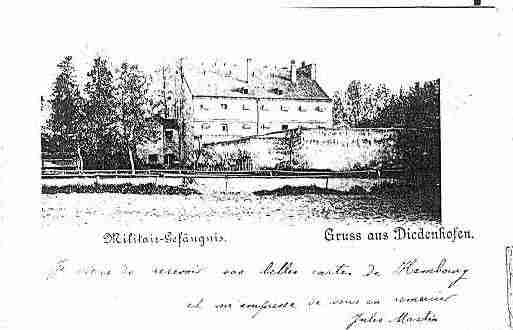 Militair-Gefängnis.
Gruss aus Diedenhofen.
Je viens de recevoir vos belles cartes de Hambourg
et m'empresse de vous en remercier
Jules Martin